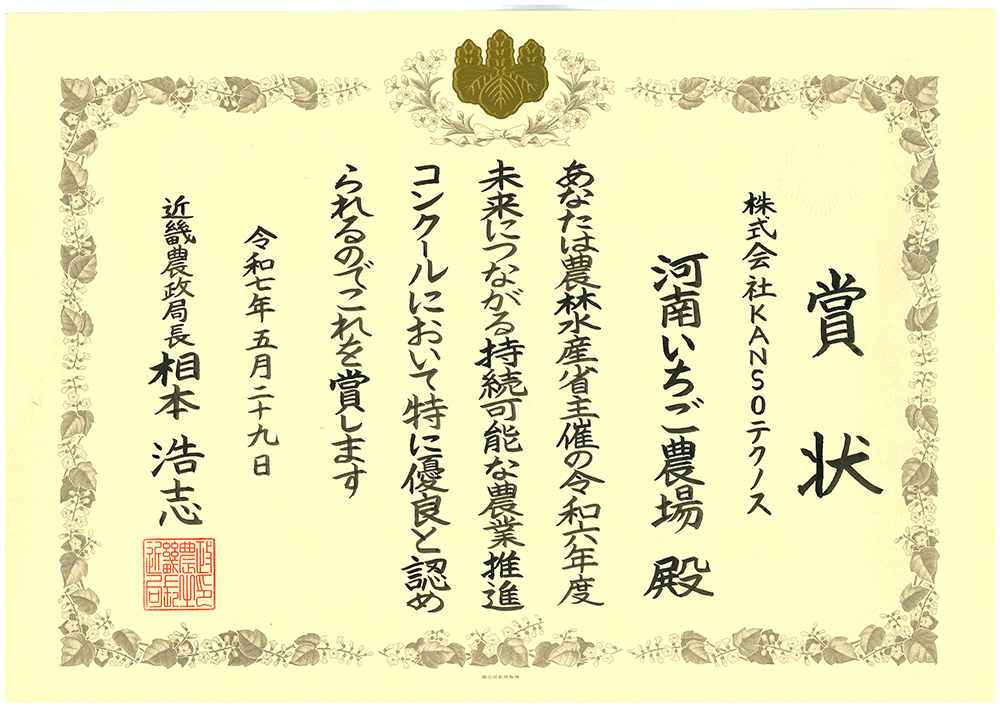 賞状
株式会社KANSOテクノス
河南いちご農場 殿
あなたは農林水産省主催の令和六年度
未来につながる持続可能な農業推進
コンクールにおいて特に優良と認め
られるのでこれを賞します
令和七年五月二十九日
近畿農政局長 相本 浩志